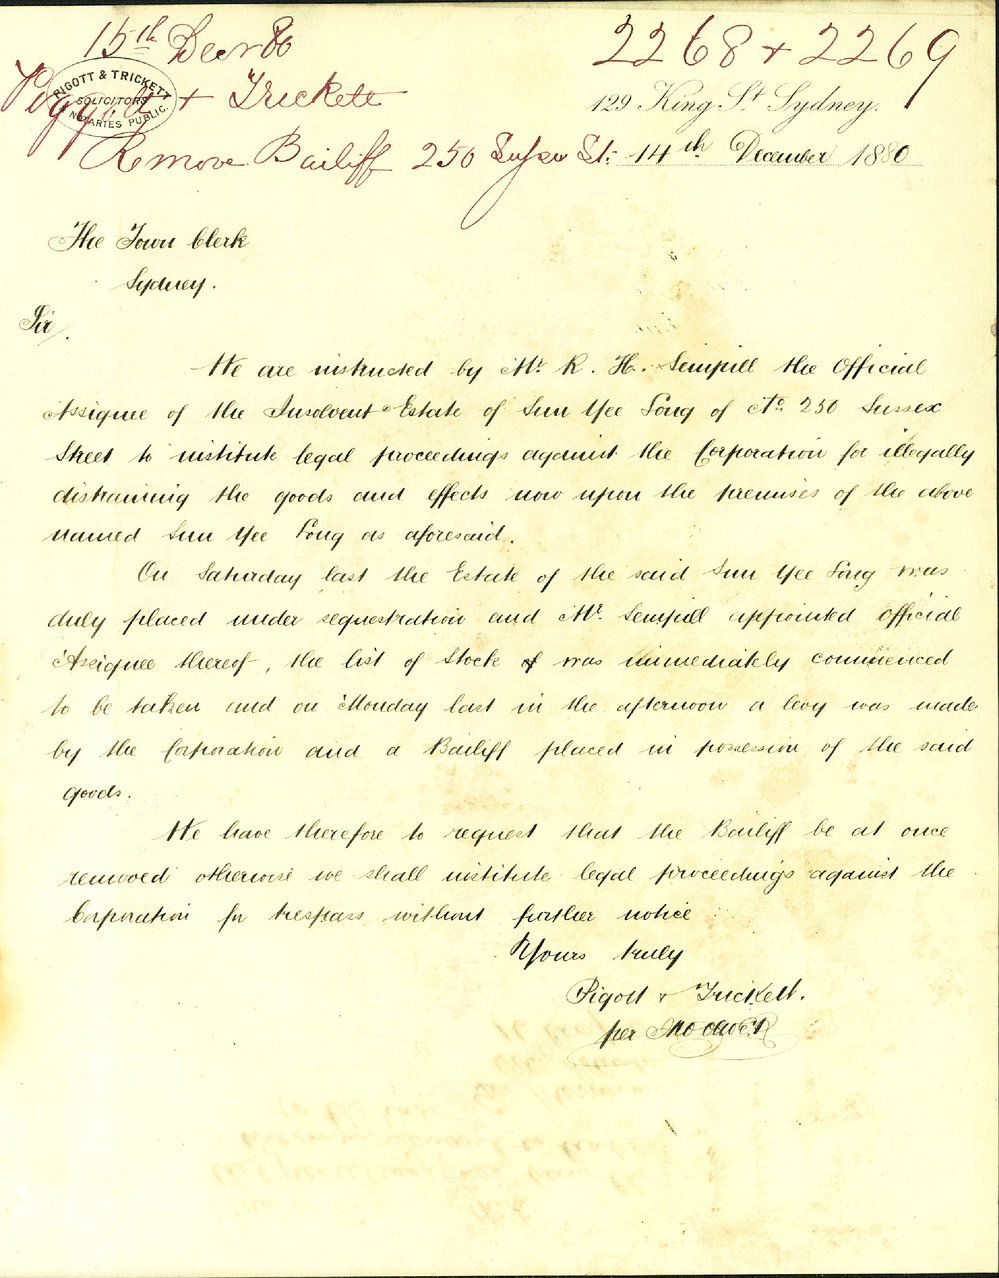 15th Decr 80
2268 + 2269
PIGOTT & TRICKETT
SOLICITORS
& NOTARIES PUBLIC.
Piggott + Trickett
129 King St Sydney.
Remove Bailiff 250 Sussex St.
14th December 1880
The Town Clerk
Sydney.
Sir/.
We are instructed by Mr. R. H. Sempill the Official
Assignee of the Insolvent Estate of Sun Yee Long of No. 250 Sussex
Street to institute legal proceedings against the Corporation for illegally
distraining the goods and effects now upon the premises of the above
named Sun Yee Long as aforesaid.
On Saturday last the Estate of the said Sun Yee Long was
duly placed under sequestration and Mr. Sempill appointed Official
Assignee thereof, the list of Stock of was immediately commenced
to be taken and on Monday last in the afternoon a levy was made
by the Corporation and a Bailiff placed in possession of the said
goods.
We have therefore to request that the Bailiff be at once
removed otherwise we shall institute legal proceedings against the
Corporation for trespass without further notice
Yours truly
Pigott & Trickett.
per